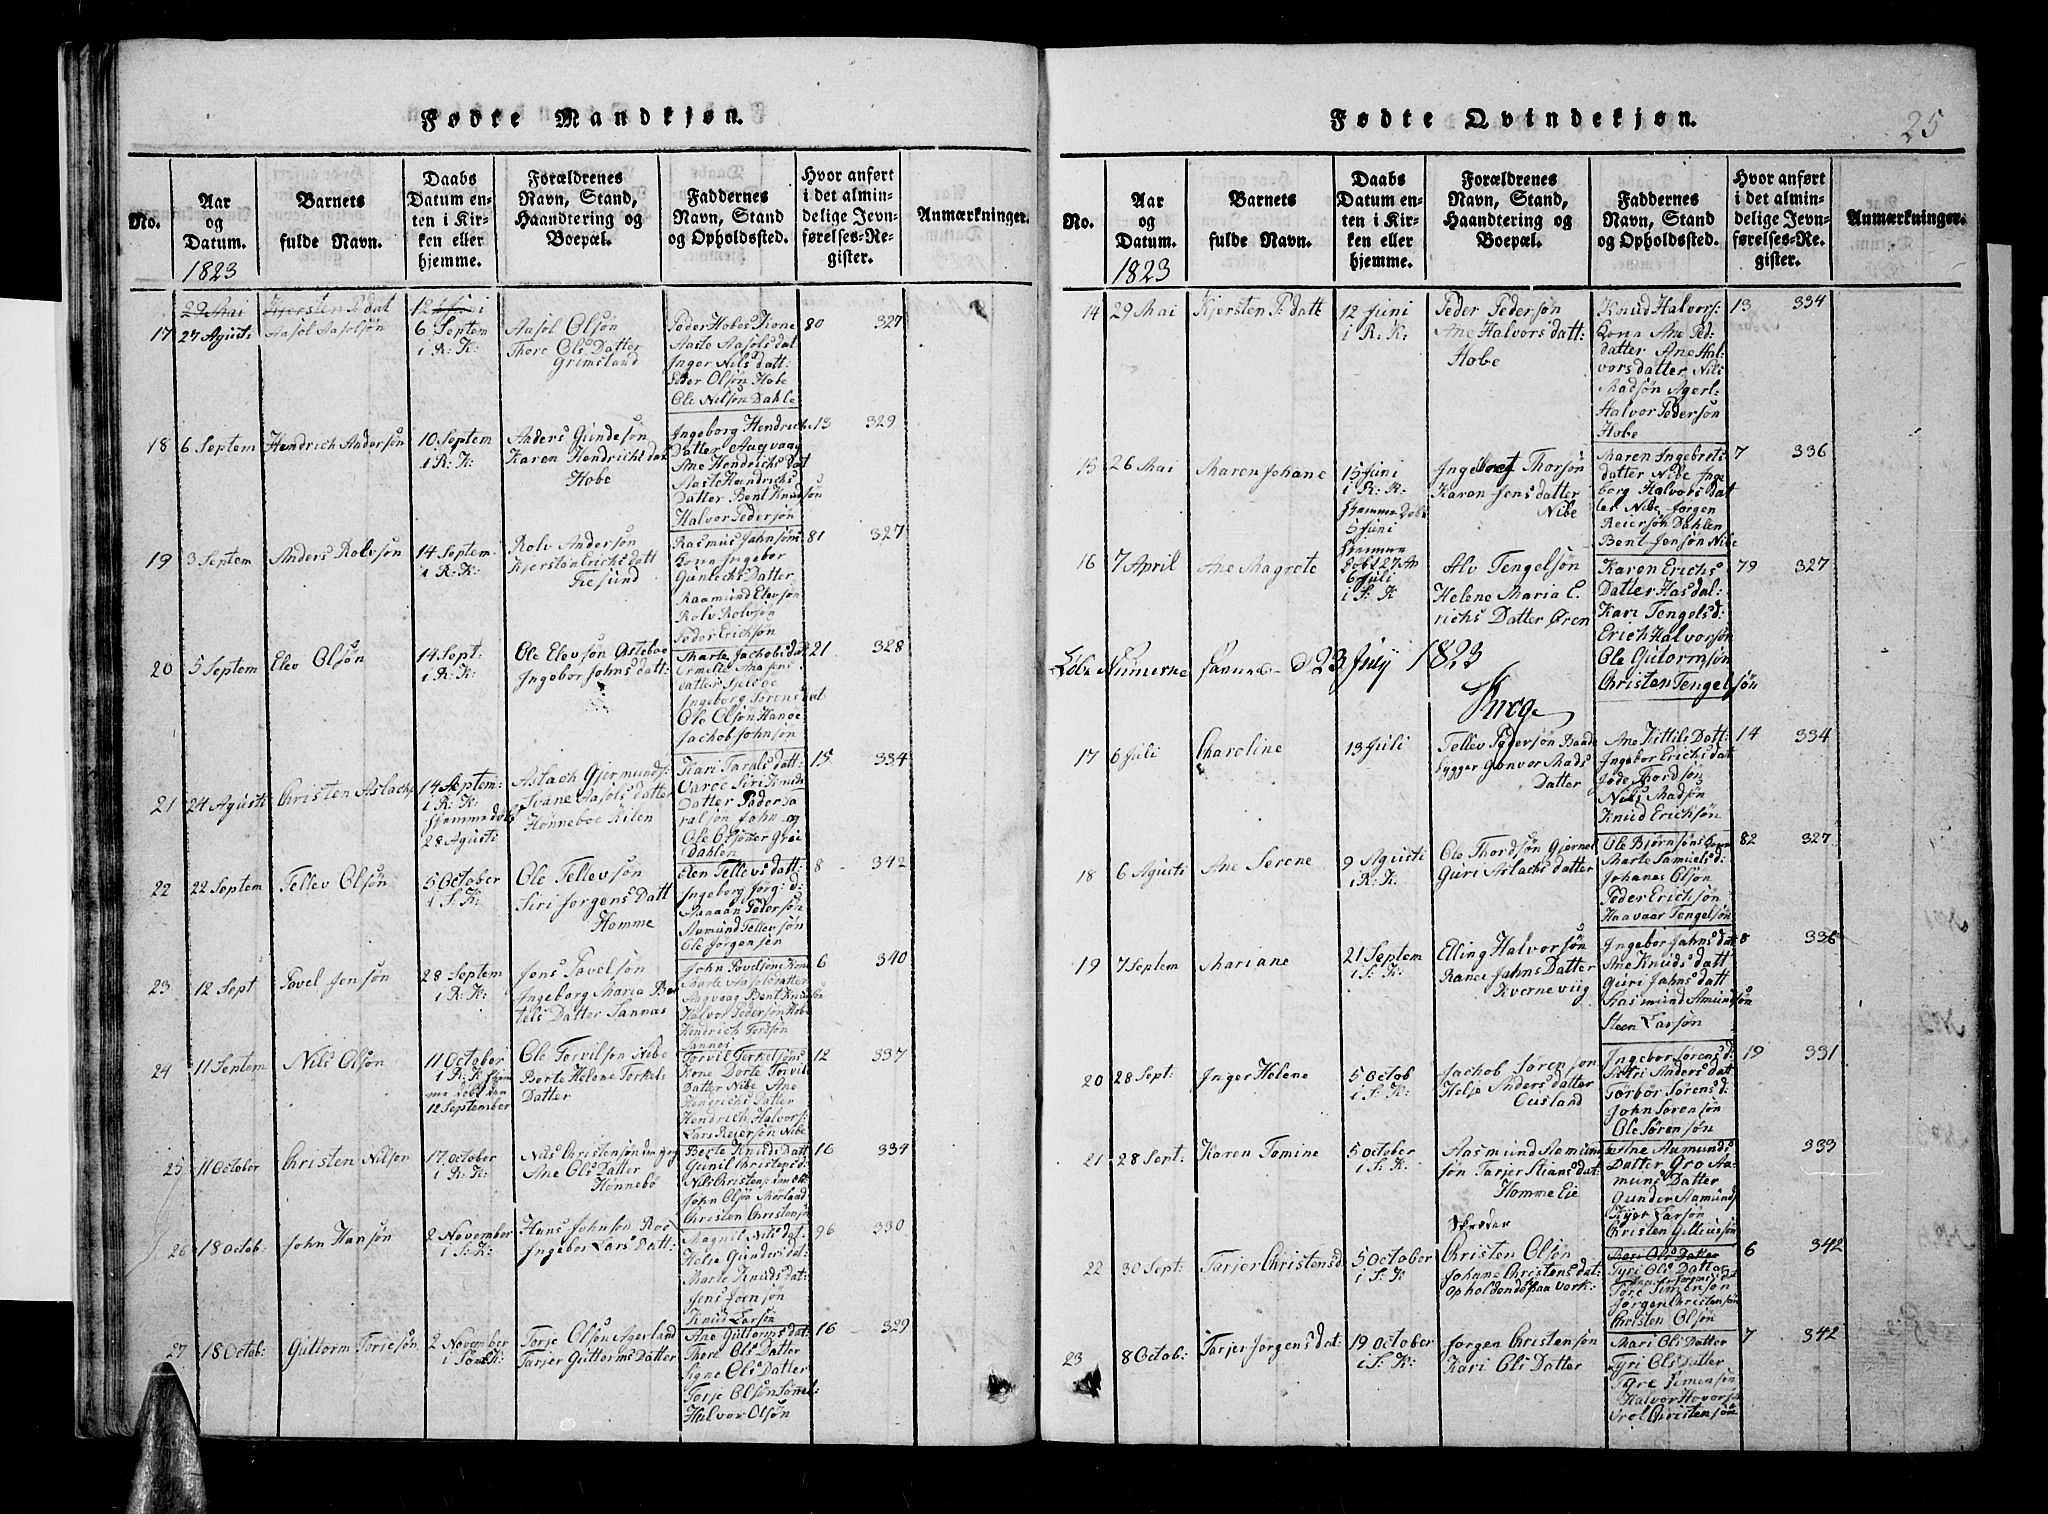 Fødte Mandkjøn.
No.
Aar
og
Datum.
1823
Barnets
fulde Navn.
Daabs
Datum en-
ten i Kir-
ken eller
hjemme.
Forældrenes
Navn, Stand,
Haandtering og
Boepæl.
Faddernes
Navn, Stand
og Opholdssted.
Hvor anført
i det almin-
delige Jevn-
førelses-Re-
gister.
Anmærkninger.
29 Mai
Kjersten P. dat
12 Juni
17
27 Agusti
Aasol Aasolsøn
6 Septem
i R: K:
Aasol Olsøn
Thore Ols Datter
Grimsland
Peder Hobes Kone
Aaste Aasolsdat
Inger Nilsdatt:
Peder Olsøn Hobe
Ole Nilsøn Dahle
80
327
18
6 Septem
Hendrich Andersøn
10 Septem
i R: K:
Anders Gundesøn
Karen Hendrichs dat
Hobe
Ingeborg Hendrichs
Datter Aagvaag
Ane Hendrichs Dat
Aaste Hendrichs
Datter Bent Knudsøn
Halvor Pedersøn
13
329
19
3 Septem
Anders Rolvsøn
14 Septem
i R: K:
Rolv Andersøn
Kjersten Erichs datt
Risund
Rasmus Jahnsøns
Kona Ingebor
Gunlechs Datter
Raamund Elevsøn
Rolv Rolvsøn
Peder Erichsøn
81
327
20
5 Septem
Elev Olsøn
14 Sept:
i R: K:
Ole Elevsøn Østeboe
Ingebor Johns datt:
Marte Jachobs dat
datter Sjelsøe
Ingeborg Sørens dat
Ole Olsøn Hanøe
Jachob Johnsøn
21
328
21
24 Agusti
Christen Aslachs:
14 Septem:
i R: K:
hjemme døbt
28 Agusti
Aslach Gjermunds:
Ivane Aasols datter
Hønneboe Kilen
Kari Taralsdatt:
Varøe Siri Knuds
Datter Peder Ha
ralsøn John og
Ole Olsøner Grøe
Dahlen
15
334
22
22 Septem
Tellev Olsøn
5 October
i S: K:
Ole Tellevsøn
Siri Jørgens Datt
Homme
Elen Tellevs datt:
Ingeborg Jørg: d:
Aanaan Pedersøn
Aamund Tellevsøn
Ole Jørgensen
8
342
23
12 Sept
Povel Jensøn
28 Septem
i R: K:
Jens Povelsøn
Ingeborg Maria Ber
tels Datter Sannæs
John Povelsøns Kone
Marte Aasols datter
Aagvaag Bent Knudsøn
Halvor Pedersøn Hobe
Hendrich Tordsøn
Sannæs
6
340
24
11 Septem
Nils Olsøn
11 October
i R: K: hjem
me døbt den
12 September
Ole Torvilsøn Nibe
Berte Helene Terkels
Datter
Torvil Terkelsøns
Kone Dorte Torvils
Datter Nibe Ane
Hendrichs Datter
Hendrich Halvors:
Lars Reiersøn Nibe
12
337
25
11 October
Christen Nilsøn
17 October
i R: K:
Nils Christensøn den yng
Ane Ols Datter
Hønnebø
Berte Knuds Datt
Gunil Christens d:
Nils Christens: den eld
John Olsøn Mørland
Christen Christensøn
10
334
26
18 Octob:
John Hansøn
2 November
i S: K:
Hans Johnsøn Roe
Ingebor Lars Datt:
Magnil Nils dat:
Helje Gunders dat:
Marte Knuds dat:
Jens Joensøn
Knud Larsøn
96
330
27
18 Octob:
Guttorm Torjesøn
2 November
i S: K:
Torje Olsøn Agerland
Tarjer Guttorms Datter
Ane Guttorms dat:
Thore Ols Datter
Signe Ols Datter
Torje Olsøn Sønet:
Halvor Olsøn
16
329
Fødte Qvindekjøn.
25
No.
Aar
og
Datum.
1823
Barnets
fulde Navn.
Daabs
Datum en-
ten i Kir-
ken eller
hjemme.
Forældrenes
Navn, Stand,
Haandtering og
Boepæl.
Faddernes
Navn, Stand
og Opholdssted.
Hvor anført
i det almin-
delige Jevn-
førelses-Re-
gister.
Anmærkninger.
14
29 Mai
Kjersten P. datt
12 Juni
i R: K:
Peder Pedersøn
Ane Halvors datt:
Hobe
Knud Halvors:
Kona Ane Ped:
datter Ane Hal-
vors datter Nils
Madsøn Agerl:
Halvor Pedersøn
Hobe
13
334
15
26 Mai
Maren Johane
15 Juni
i R: K:
hjemme døbt
5 Juni
Ingebret Thorsøn
Karen Jens datter
Nibe
Maren Ingebrets
datter Nibe Inge
borg Halvors dat
ter Nibe Jørgen
Reiersøn Dahlen
Bent Jensøn Nibe
7
336
16
7 April
Ane Magrete
hjemme
døbt 27 Ap
6 Juli
i S: K
Alv Tengelsøn
Helene Maria E.
richs Datter Øren
Karen Erichs
Datter Hasdal:
Kari Tengels d:
Erich Halvorsøn
Ole Gutormsøn
Christen Tengelsøn
79
327
Løbe Numerne d 23 July 1823
Krog
17
6 Juli
Charoline
13 Juli
Tellev Pedersøn Baad
bygger Gunvor Mads
Datter
Ane Kittils Datt:
Ingebor Erichs dat
Jøde Thordsøn
Nils Madsøn
Knud Erichsøn
14
334
18
6 Agusti
Ane Serene
9 Agusti
i R: K:
Ole Thordsøn Gjernes
Guri Aslachs datter
Ole Bjørnsøns kone
Marte Samuels d:
Johanes Olsøn
Peder Erichsøn
Haavaar Tengelsøn
82
327
19
7 Septem
Mariane
21 Septem
i S: K:
Elling Halvorsøn
Ranei Jahns Datter
Kverneviig
Ingebor Jahns dat
Ane Knuds datt
Guri Jahns datt
Aasmund Amundsøn
Steen Larsøn
8
336
20
28 Sept:
Inger Helene
5 Octob
i S: K:
Jachob Sørensøn
Helje Anders datter
Ousland
Ingebor Sørens d:
Astri Anders datt
Torbør Sørens d:
John Sørensøn
Ole Sørensøn
19
331
21
28 Sept.
Karen Tomine
5 October
i S: K:
Aasmund Aamund
søn Tarjer Stians dat:
Homme Eie
Ane Aamunds
Datter Gro Aa-
munds Datter
Gunder Aamunds
Kjøst Larsøn
Christen Gulliusøn
333
22
30 Sept:
Tarjer Christens d
5 October
i S: K
Skreder
Christen Olsøn
Johane Christens dat:
opholdende paa Værk:
Mari Ols Datter
Tyri Ols Datter
Tore Simensøn
Jørgen Christensøn
Christen Olsøn
6
342
23
8 Octob:
Tarjer Jørgens dat:
19 October
i S: K:
Jørgen Christensøn
Kari Ols Datter
Mari Ols Datter
Tyri Ols Datter
Tore Simensøn
Halvor Hovorsø
Christensøn
7
342